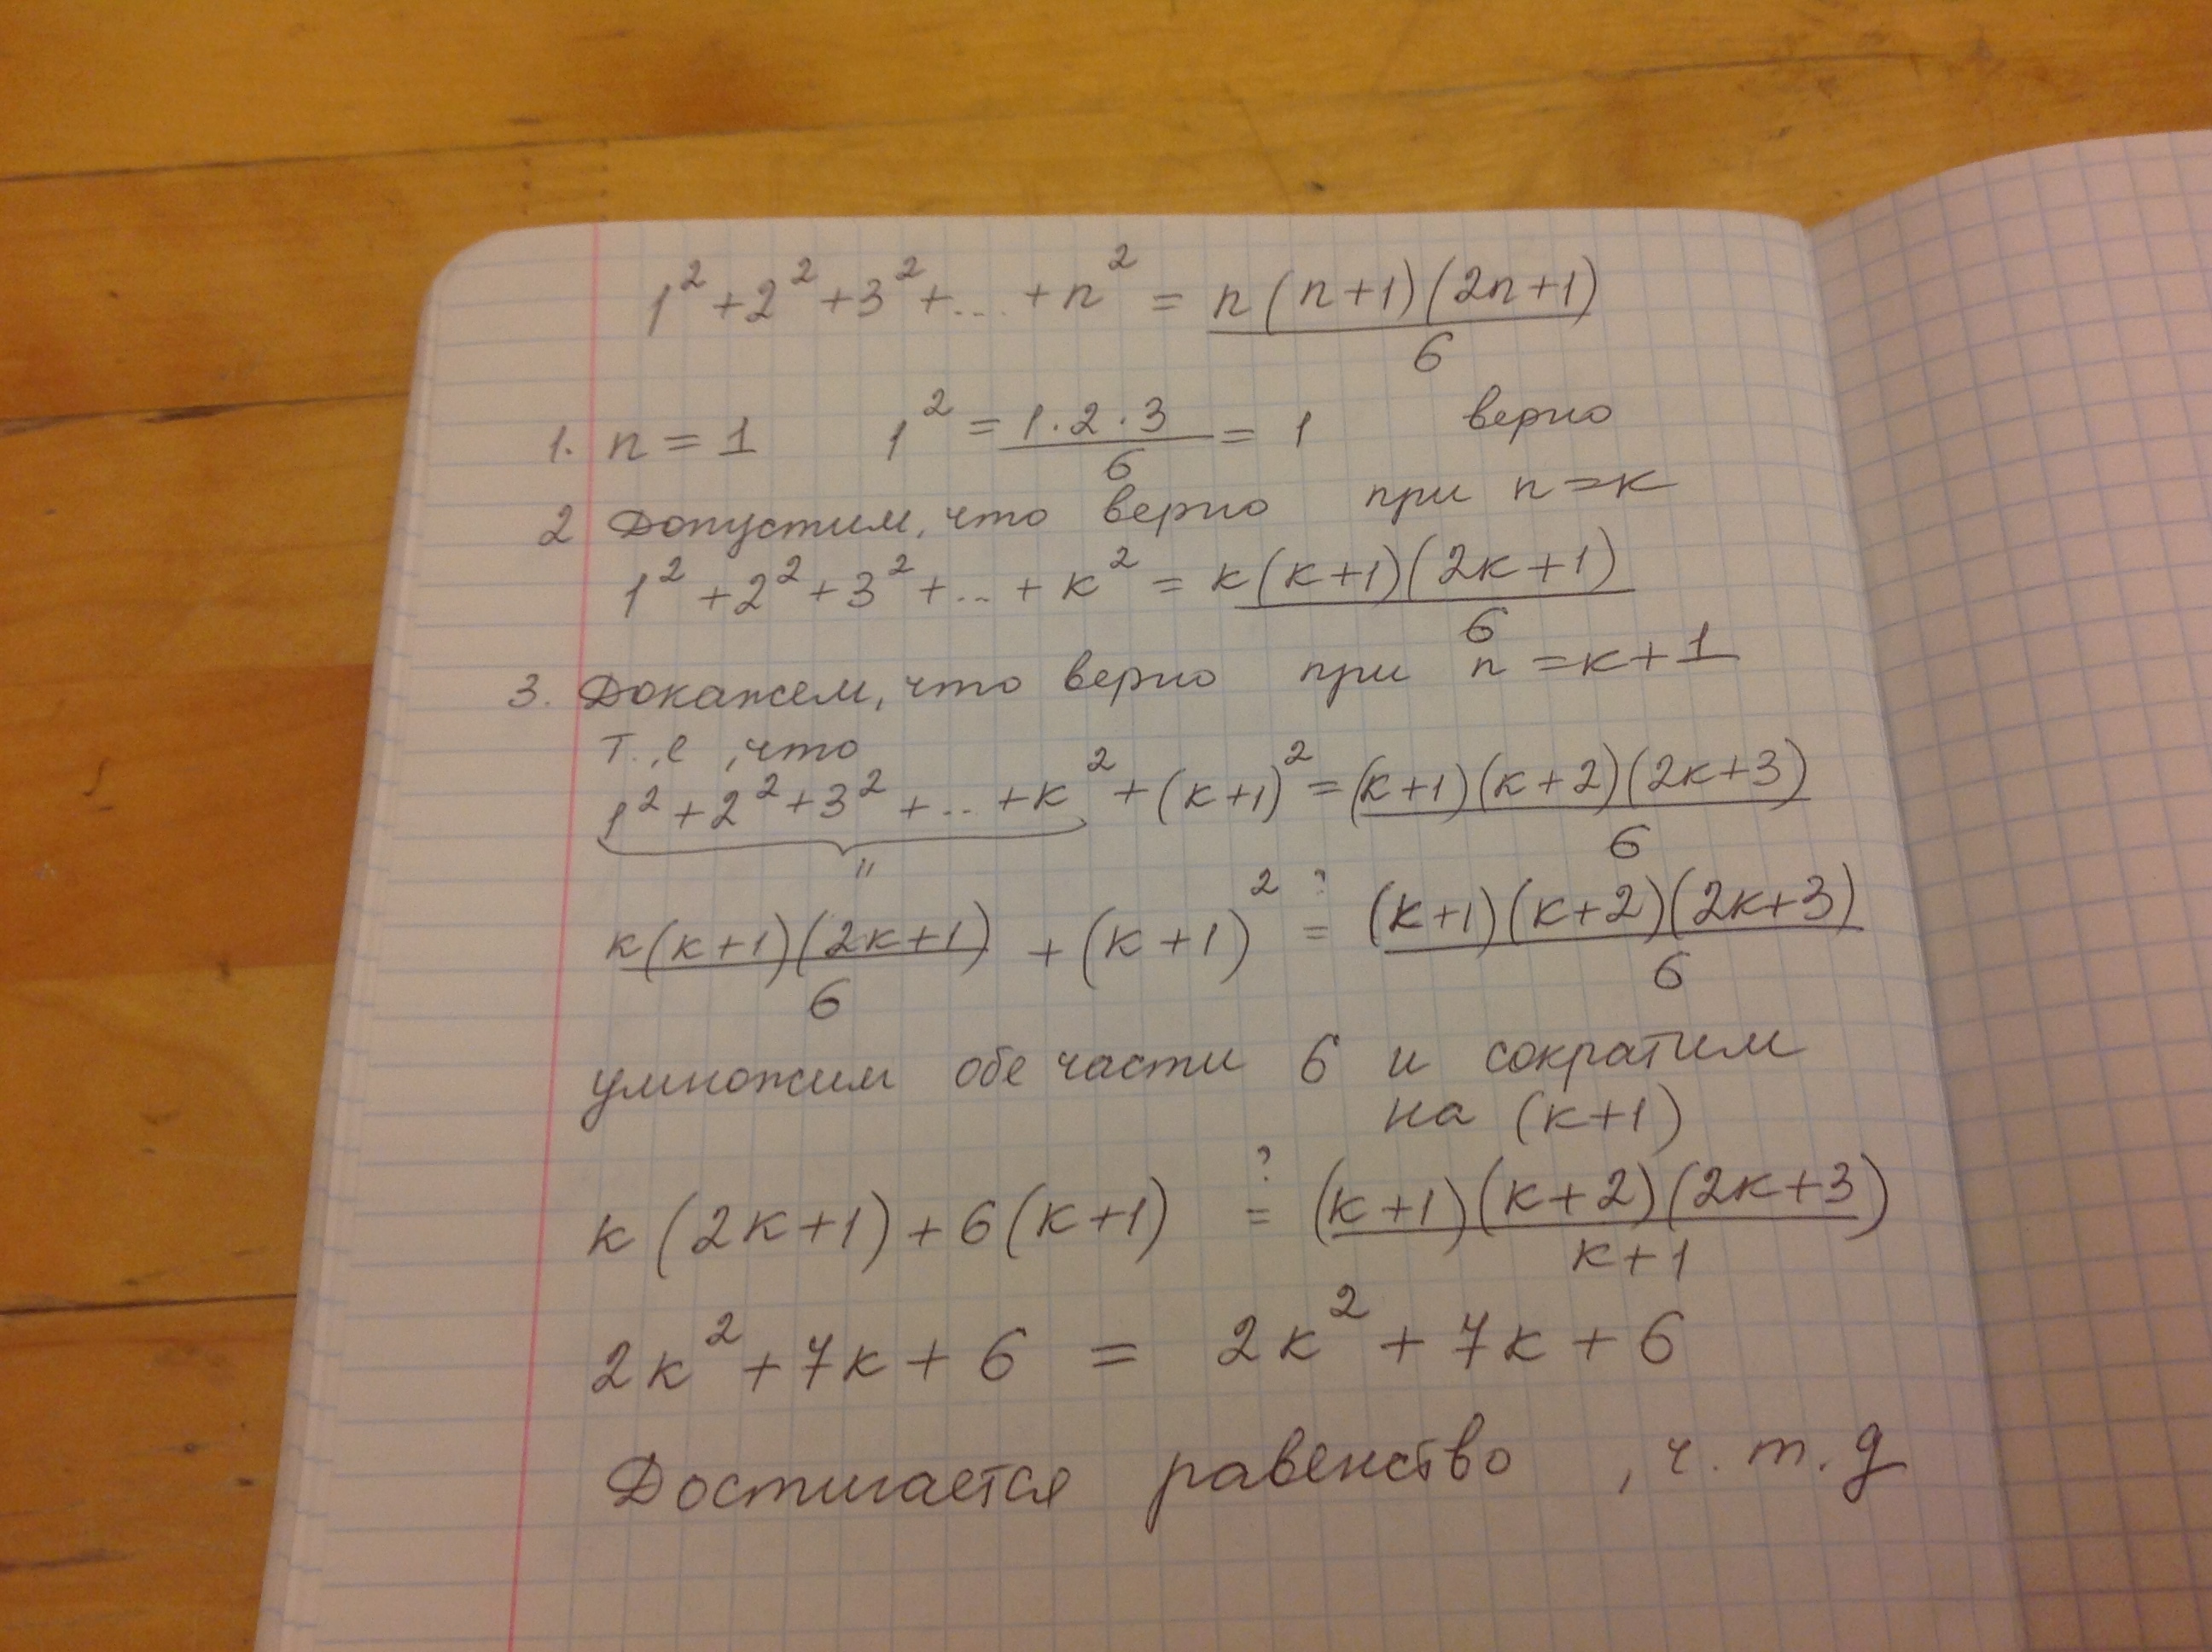 1² + 2² + 3² + ... + n² = n(n+1)(2n+1)/6
1. n = 1 1² = 1·2·3/6 = 1 верно
2 Допустим, что верно при n=к
1² + 2² + 3² + ... + к² = к(к+1)(2к+1)/6
3. Докажем, что верно при n = к+1
т.,е ,что
1² + 2² + 3² + ... + к² + (к+1)² = (к+1)(к+2)(2к+3)/6
"
к(к+1)(2к+1)/6 + (к+1)² ?= (к+1)(к+2)(2к+3)/6
умножим обе части 6 и сократим
на (к+1)
к(2к+1) + 6(к+1) ?= (к+1)(к+2)(2к+3)/к+1
2к² + 7к + 6 = 2к² + 7к + 6
Достигается равенство , ч. т. д